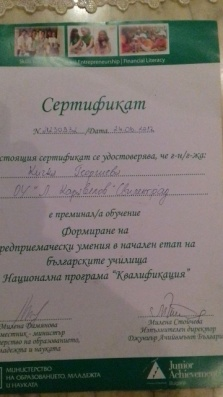 Entrepreneurship | Financial Literacy
Сертификат
/Дата
стоящия сертификат се удостоверява, че г-н/г-жа:
Георгиева
е преминал/а обучение
Формиране на
редприемачески умения в начален етап на
българските училища
Национална програма "Квалификация"
Милена Дамянова
местник - министър
терство на образованието,
ладежта и науката
Милена Стойчева
Изпълнителен директор
Джуниър Ачийвмънт България
МИНИСТЕРСТВО
НА ОБРАЗОВАНИЕТО, МЛАДЕЖТА
И НАУКАТА
Junior
Achievement